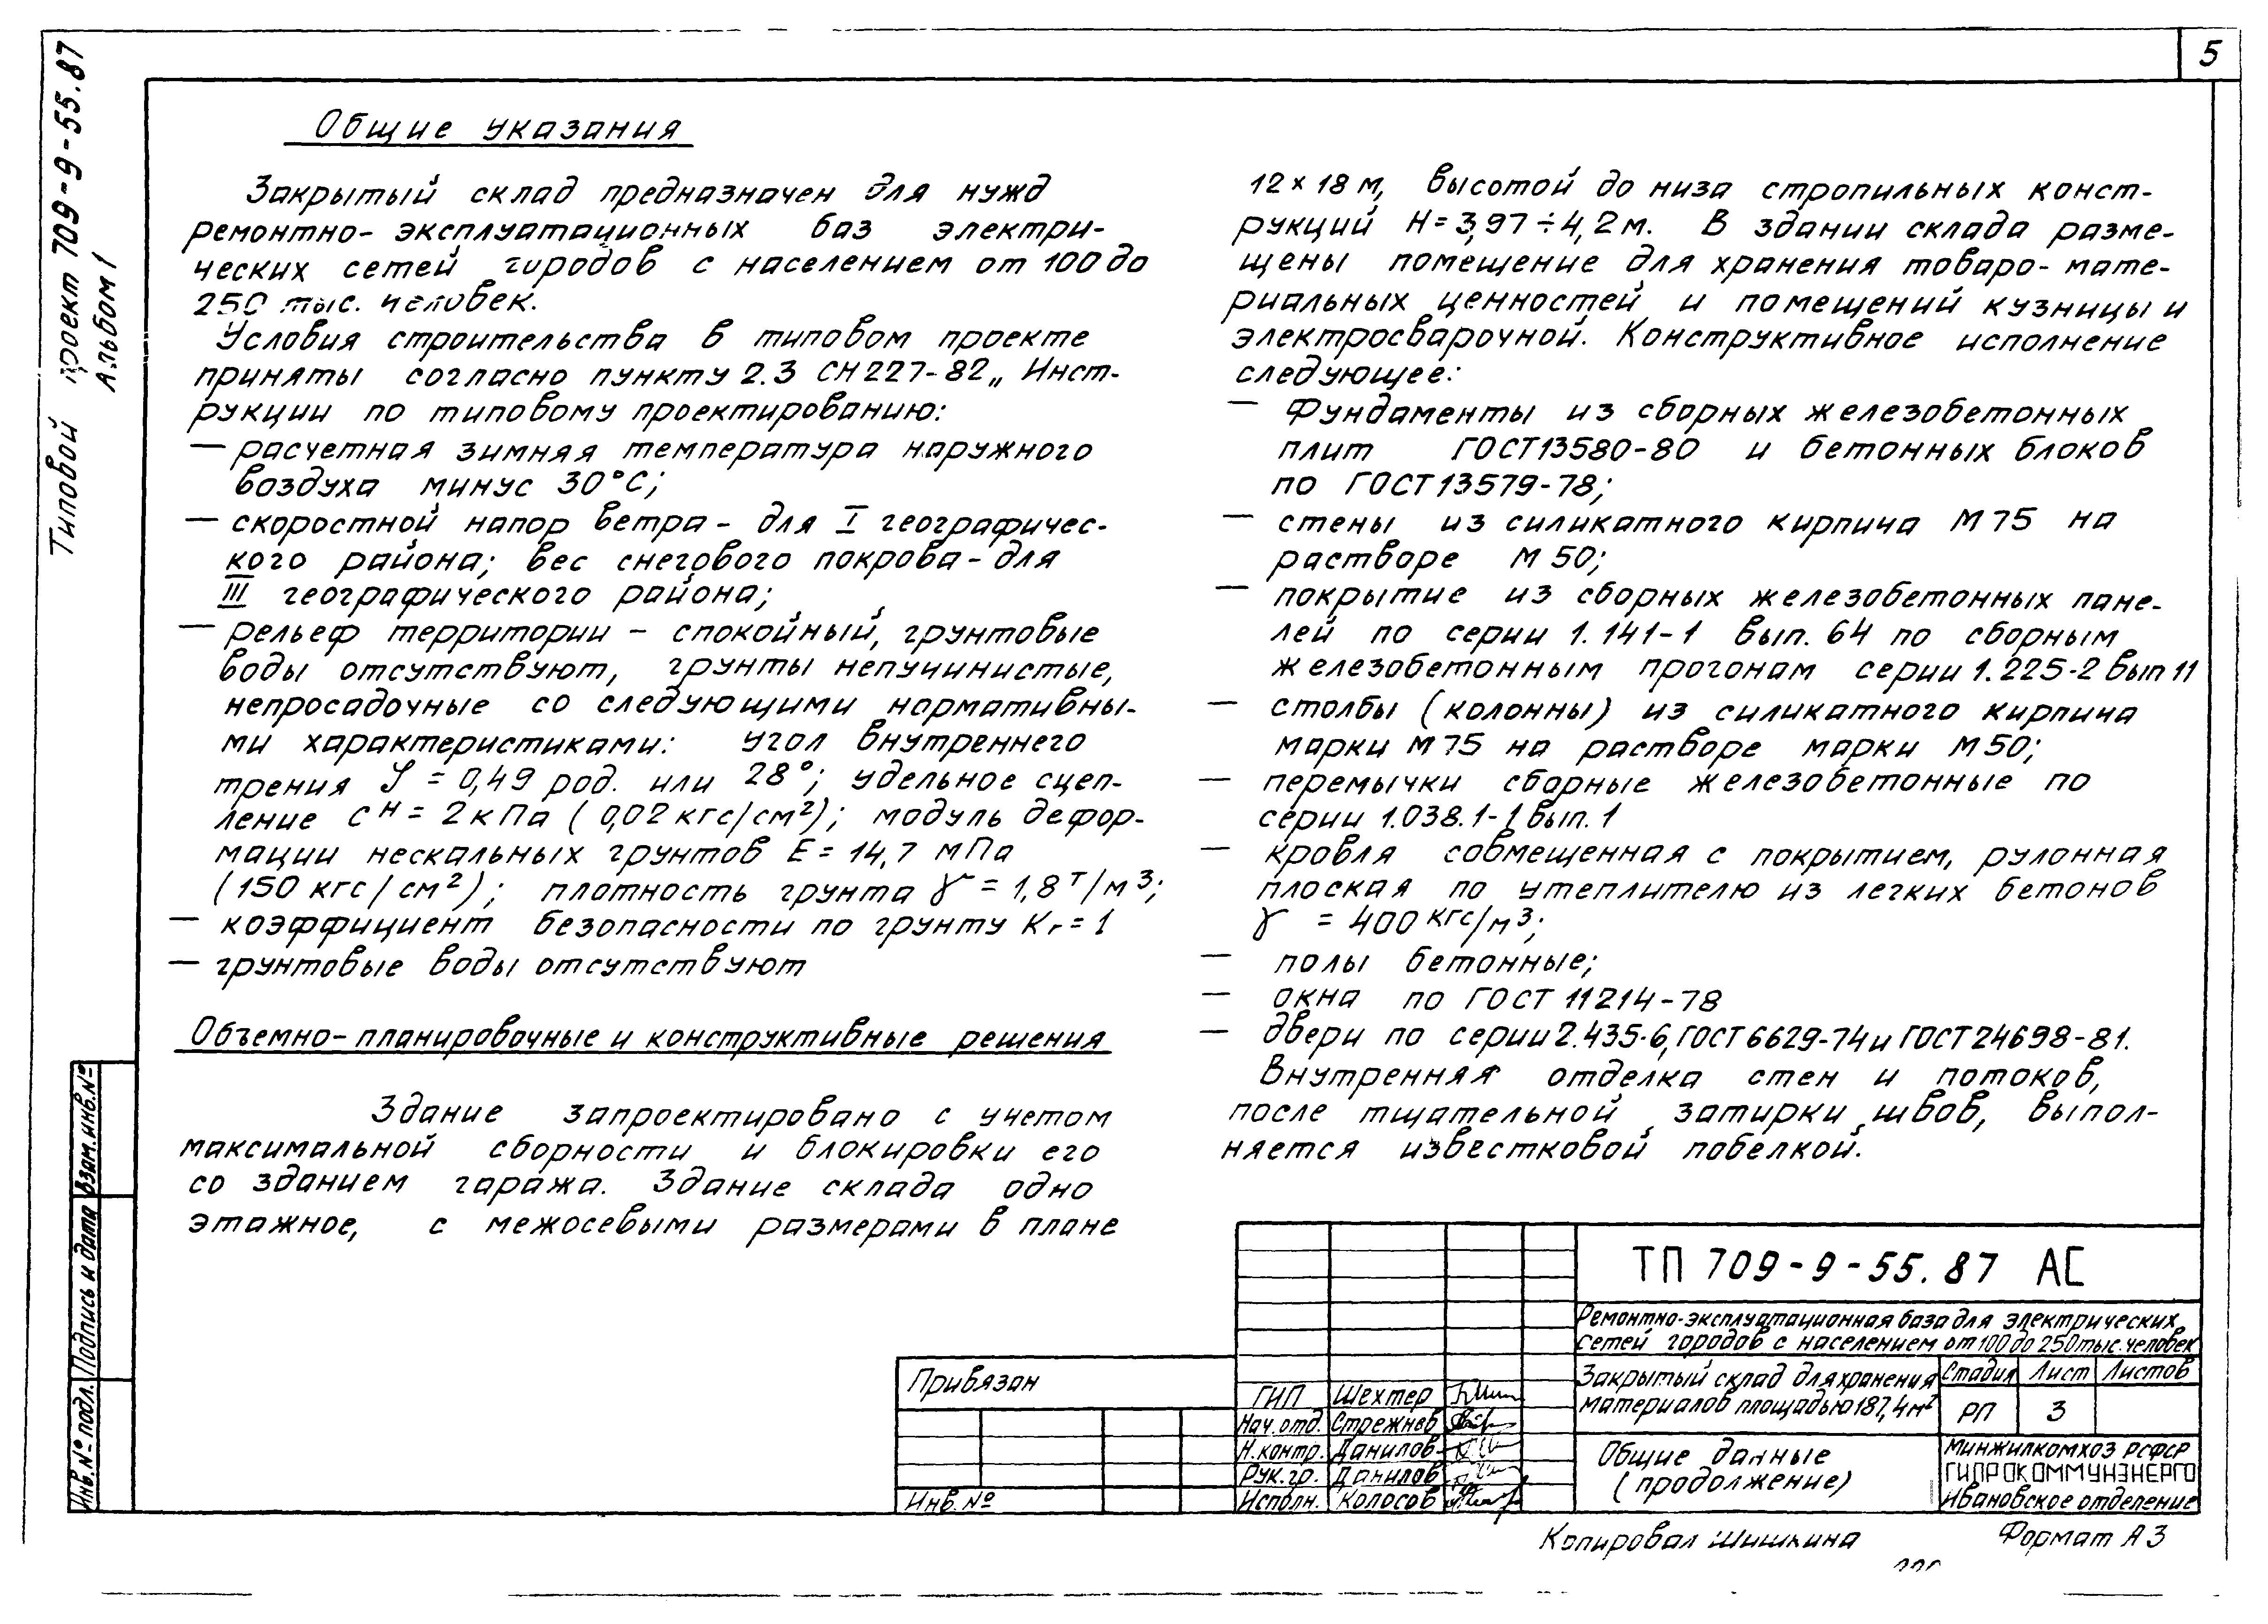 5
Типовой проект 709-9-55.87
Альбом 1
Общие указания
Закрытый склад предназначен для нужд
ремонтно-эксплуатационных баз электри-
ческих сетей городов с населением от 100 до
250 тыс. человек.
Условия строительства в типовом проекте
приняты согласно пункту 2.3 СН 227-82 „Инст-
рукции по типовому проектированию:
— расчетная зимняя температура наружного
воздуха минус 30°С;
— скоростной напор ветра - для I географичес-
кого района; вес снегового покрова - для
III географического района;
— рельеф территории - спокойный, грунтовые
воды отсутствуют, грунты непучинистые,
непросадочные со следующими нормативны-
ми характеристиками: угол внутреннего
трения φ = 0,49 род. или 28°; удельное сцеп-
ление Cᴴ = 2 кПа (0,02 кгс/см²); модуль дефор-
мации нескальных грунтов Е = 14,7 мПа
(150 кгс/см²); плотность грунта γ = 1,8 т/м³;
— коэффициент безопасности по грунту Кг = 1
— грунтовые воды отсутствуют
Объемно-планировочные и конструктивные решения
Здание запроектировано с учетом
максимальной сборности и блокировки его
со зданием гаража. Здание склада одно
этажное, с межосевыми размерами в плане
12 × 18 м, высотой до низа стропильных конст-
рукций Н = 3,97 ÷ 4,2 м. В здании склада разме-
щены помещение для хранения товаро-мате-
риальных ценностей и помещений кузницы и
электросварочной. Конструктивное исполнение
следующее:
— фундаменты из сборных железобетонных
плит ГОСТ 13580-80 и бетонных блоков
по ГОСТ 13579-78;
— стены из силикатного кирпича М 75 на
растворе М 50;
— покрытие из сборных железобетонных пане-
лей по серии 1.141-1 вып. 64 по сборным
железобетонным прогонам серии 1.225-2 вып 11
— столбы (колонны) из силикатного кирпича
марки М 75 на растворе марки М 50;
— перемычки сборные железобетонные по
серии 1.038.1-1 вып. 1
— кровля совмещенная с покрытием, рулонная
плоская по утеплителю из легких бетонов
γ = 400 кгс/м³;
— полы бетонные;
— окна по ГОСТ 11214-78
— двери по серии 2.435-6, ГОСТ 6629-74 и ГОСТ 24698-81.
Внутренняя отделка стен и потоков,
после тщательной затирки швов, выпол-
няется известковой побелкой.
Взам. инв. №
Подпись и дата
Инв. № подл.
Привязан
Инв. №
ГИП Шехтер
Нач. отд. Стрежнев
Н. контр. Данилов
Рук. гр. Данилов
Исполн. Колосов
ТП 709-9-55.87 АС
Ремонтно-эксплуатационная база для электрических
сетей городов с населением от 100 до 250 тыс. человек
Закрытый склад для хранения
материалов площадью 187,4 м²
Стадия Лист Листов
РП 3
Общие данные
(продолжение)
Минжилкомхоз РСФСР
ГИПРОКОММУНЭНЕРГО
Ивановское отделение
Копировал Шишкина
Формат А3